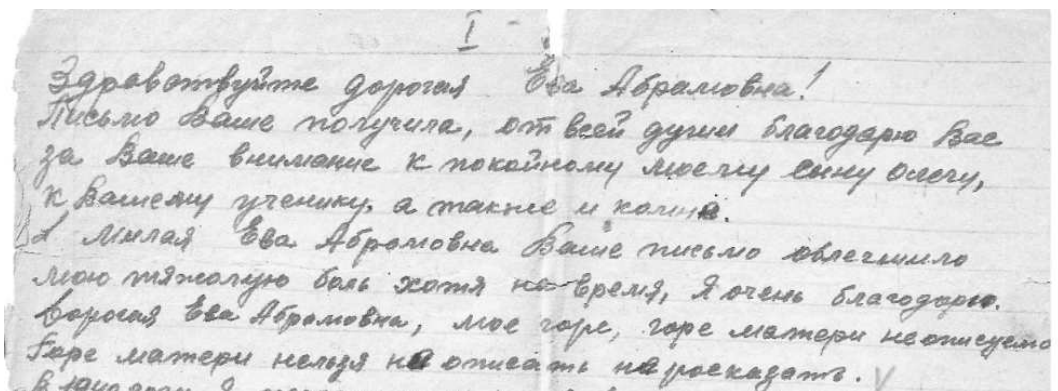 I
Здравствуйте дорогая Ева Абрамовна!
Письмо Ваше получила, от всей души благодарю Вас
за Ваше внимание к покойному моему сыну Олегу,
к Вашему ученику, а также и ко мне.
Милая Ева Абрамовна Ваше письмо облегчило
мою тяжолую боль хотя на время, Я очень благодарю.
Дорогая Ева Абрамовна, мое горе, горе матери неописуемо
Горе матери нельзя не описать не росказать.